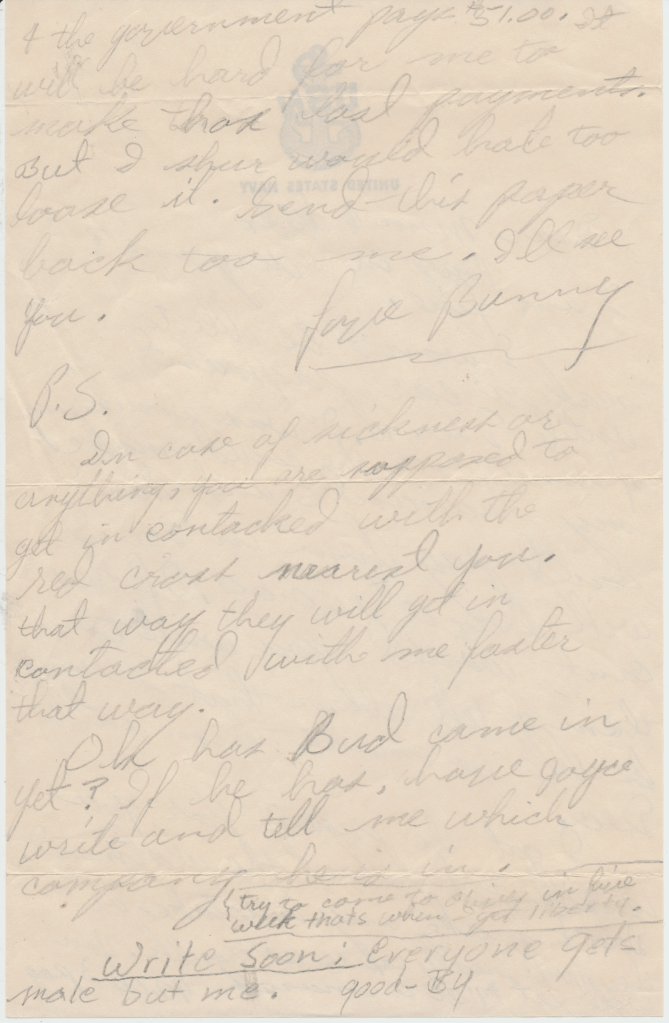 & the government pays $51.00. It
will be hard for me to
make thos last payments.
But I shur would hate too
loose it. Send this paper
back too me. I'll see
you. Love Bunny
P.S.
In case of sickness or
anything, you are supposed to
get in contacked with the
red cross nearest you.
that way they will get in
contacted withe me faster
that way.
Oh has Bud came in
yet? If he has, have Joyce
write and tell me which
company he is in.
try to come to in five
week thats when I get liberty.
Write Soon: Everyone gets
male but me. good-By
UNITED STATES NAVY